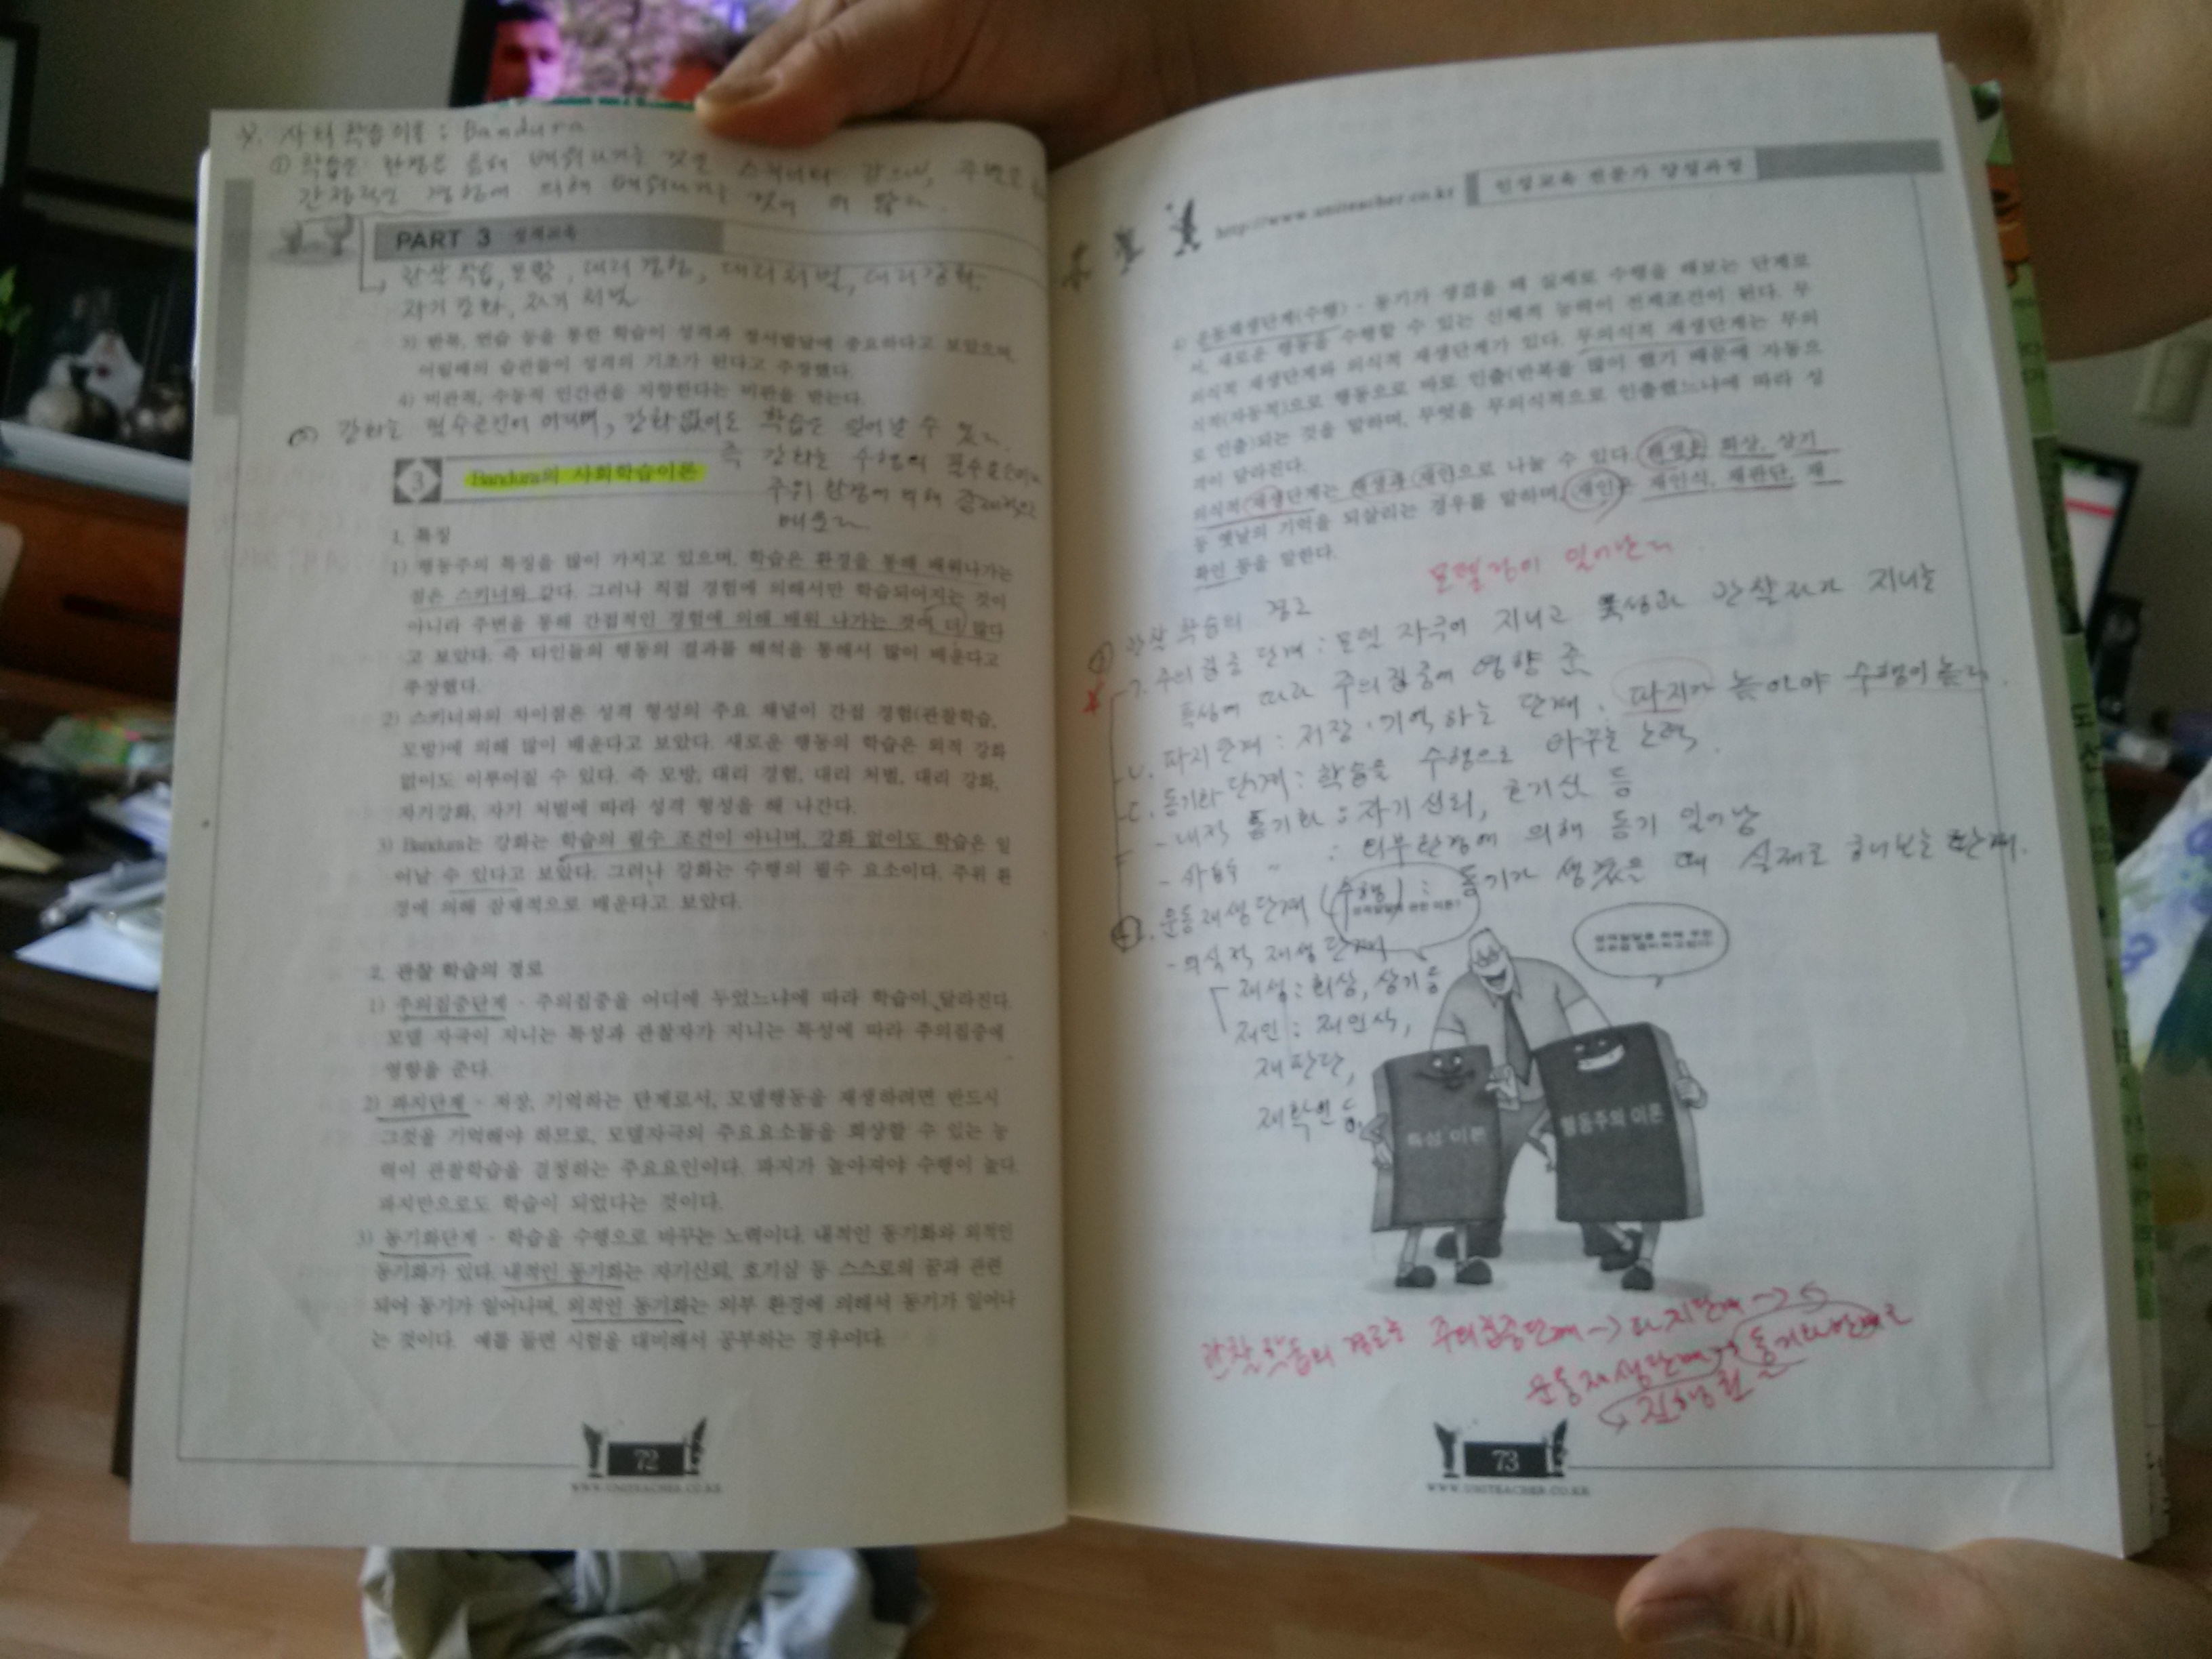 ※. 사회학습이론 : Bandura
① 학습은 환경을 통해 배워나가는 것은 스키너와 같으나, 주변을
간접적인 경험에 의해 배워나가는 것이 더 많다.
PART 3 성격교육
관찰학습, 모방, 대리경험, 대리처벌, 대리강화,
자기강화, 자기처벌
3) 반복, 연습 등을 통한 학습이 성격과 정서발달에 중요하다고 보았으며,
어릴때의 습관들이 성격의 기초가 된다고 주장했다.
4) 비관적, 수동적 인간관을 지향한다는 비판을 받는다.
② 강화는 필수조건이 아니며, 강화없이도 학습은 일어날 수 있다.
즉 강화는 수행의 필수요소이다
주위 환경에 의해 잠재적으로
배운다.
3 Bandura의 사회학습이론
1. 특징
1) 행동주의 특징을 많이 가지고 있으며, 학습은 환경을 통해 배워나가는
점은 스키너와 같다. 그러나 직접 경험에 의해서만 학습되어지는 것이
아니라 주변을 통해 간접적인 경험에 의해 배워 나가는 것이 더 많다
고 보았다. 즉 타인들의 행동의 결과를 해석을 통해서 많이 배운다고
주장했다.
2) 스키너와의 차이점은 성격 형성의 주요 채널이 간접 경험(관찰학습,
모방)에 의해 많이 배운다고 보았다. 새로운 행동의 학습은 외적 강화
없이도 이루어질 수 있다. 즉 모방, 대리 경험, 대리 처벌, 대리 강화,
자기강화, 자기 처벌에 따라 성격 형성을 해 나간다.
3) Bandura는 강화는 학습의 필수 조건이 아니며, 강화 없이도 학습은 일
어날 수 있다고 보았다. 그러나 강화는 수행의 필수 요소이다. 주위 환
경에 의해 잠재적으로 배운다고 보았다.
2. 관찰 학습의 경로
1) 주의집중단계 - 주의집중을 어디에 두었느냐에 따라 학습이 달라진다.
모델 자극이 지니는 특성과 관찰자가 지니는 특성에 따라 주의집중에
영향을 준다.
2) 파지단계 - 저장, 기억하는 단계로서, 모델행동을 재생하려면 반드시
그것을 기억해야 하므로, 모델자극의 주요요소들을 회상할 수 있는 능
력이 관찰학습을 결정하는 주요요인이다. 파지가 높아져야 수행이 높다.
파지만으로도 학습이 되었다는 것이다.
3) 동기화단계 - 학습을 수행으로 바꾸는 노력이다. 내적인 동기화와 외적인
동기화가 있다. 내적인 동기화는 자기신뢰, 호기심 등 스스로의 꿈과 관련
되어 동기가 일어나며, 외적인 동기화는 외부 환경에 의해서 동기가 일어나
는 것이다. 예를 들면 시험을 대비해서 공부하는 경우이다.
72
WWW.UNITEACHER.CO.KR
http://www.uniteacher.co.kr 인성교육 전문가 양성과정
4) 운동재생단계(수행) - 동기가 생겼을 때 실제로 수행을 해보는 단계로
서, 새로운 행동을 수행할 수 있는 신체적 능력이 전제조건이 된다. 무
의식적 재생단계와 의식적 재생단계가 있다. 무의식적 재생단계는 무의
식적(자동적)으로 행동으로 바로 인출(반복을 많이 했기 때문에 자동으
로 인출)되는 것을 말하며, 무엇을 무의식적으로 인출했느냐에 따라 성
격이 달라진다.
의식적 재생단계는 재생과 재인으로 나눌 수 있다. 재생은 회상, 상기
등 옛날의 기억을 되살리는 경우를 말하며, 재인은 재인식, 재판단, 재
확인 등을 말한다.
모델링이 일어난다.
① 관찰학습의 경로
ㄱ. 주의집중 단계 : 모델 자극이 지니고 특성과 관찰자가 지니는
특성에 따라 주의집중에 영향 준
ㄴ. 파지단계 : 저장·기억하는 단계. 파지가 높아야 수행이 높다.
ㄷ. 동기화 단계 : 학습을 수행으로 바꾸는 노력.
- 내적 동기화 : 자기신뢰, 호기심 등
- 〃 : 외부환경에 의해 동기 일어남
운동재생단계 (수행) : 동기가 생겼을 때 실제로 해보는 단계.
- 의식적 재생단계
재생 : 회상, 상기등
재인 : 재인식,
재판단,
재확인등.
특성 이론
행동주의 이론
관찰학습의 경로는 주의집중단계 → 파지단계 →
운동재생단계 → 동기화단계로
진행됨
73
WWW.UNITEACHER.CO.KR